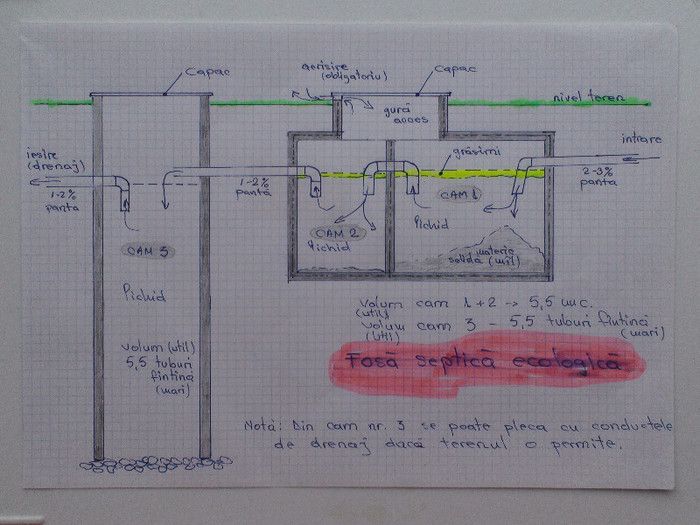 capac
aerisire
(obligatoriu)
capac
nivel teren
gură
acces
intrare
2-3%
panta
grăsimi
CAM 1
lichid
materie
solidă (mîl)
CAM 2
lichid
1-2%
panta
iesire
(drenaj)
1-2%
panta
CAM 3
lichid
volum (util)
5,5 tuburi
fîntînă
(mari)
volum cam 1+2 -> 5,5 mc.
(util)
volum cam 3 - 5,5 tuburi fîntînă
(util) (mari)
Fosă septică ecologică
Notă: Din cam nr. 3 se poate pleca cu conductele
de drenaj dacă terenul o permite.